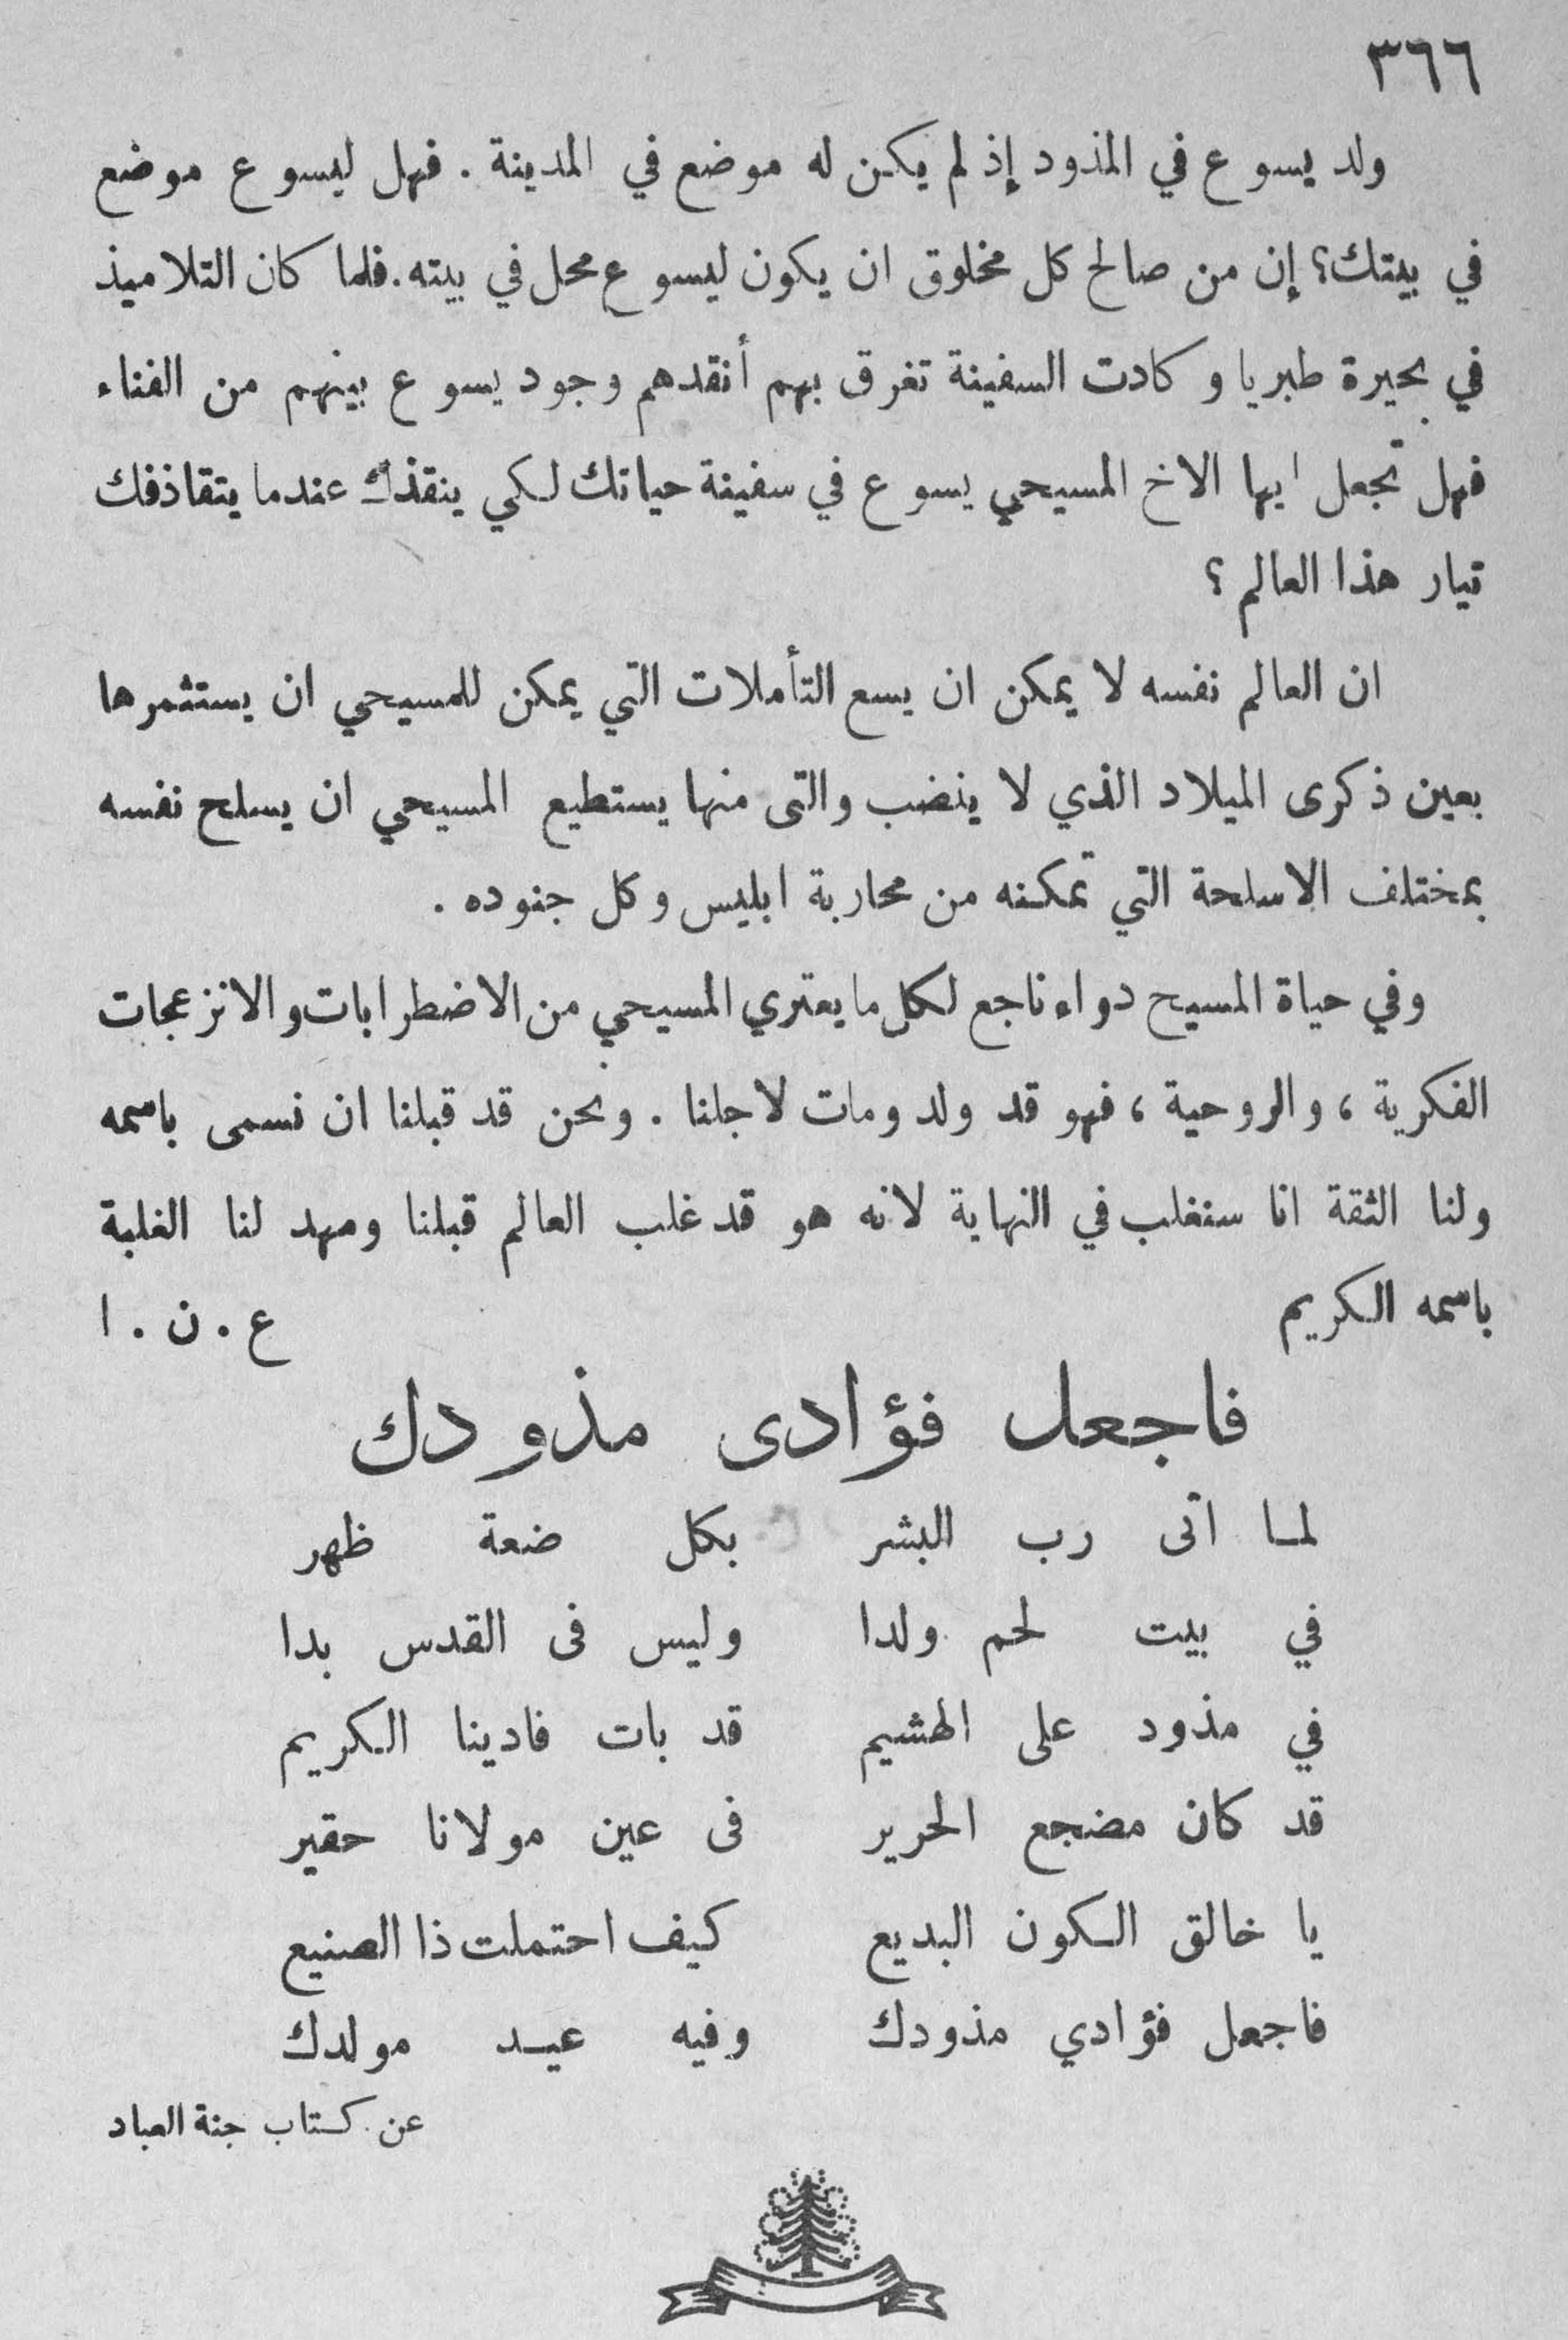 ٣٦٦
ولد يسوع في المذود إذ لم يكن له موضع في المدينة . فهل ليسوع موضع
في بيتك؟ إن من صالح كل مخلوق ان يكون ليسوع محل في بيته. فلما كان التلاميذ
في بحيرة طبريا وكادت السفينة تغرق بهم أنقدهم وجود يسوع بينهم من الفناء
فهل تجعل ايها الاخ المسيحي يسوع في سفينة حياتك لكي ينقذك عندما يتقاذفك
تيار هذا العالم ؟
ان العالم نفسه لا يمكن ان يسع التأملات التي يمكن للمسيحي ان يستثمرها
بعين ذكرى الميلاد الذي لا ينضب والتى منها يستطيع المسيحي ان يسلح نفسه
بمختلف الاسلحة التي تمكنه من محاربة ابليس وكل جنوده .
وفي حياة المسيح دواء ناجع لكل ما يعتري المسيحي من الاضطرابات والانزعجات
الفكرية ، والروحية ، فهو قد ولد ومات لاجلنا . ونحن قد قبلنا ان نسمى باسمه
ولنا الثقة انا سنغلب في النهاية لانه هو قد غلب العالم قبلنا ومهد لنا الغلبة
باسمه الكريم ع . ن . ا
فاجعل فؤادى مذودك
لما اتى رب البشر بكل ضعة ظهر
في بيت لحم ولدا وليس فى القدس بدا
في مذود على الهشيم قد بات فادينا الكريم
قد كان مضجع الحرير فى عين مولانا حقير
يا خالق الكون البديع كيف احتملت ذا الصنيع
فاجعل فؤادي مذودك وفيه عيد مولدك
عن كتاب جنة العباد